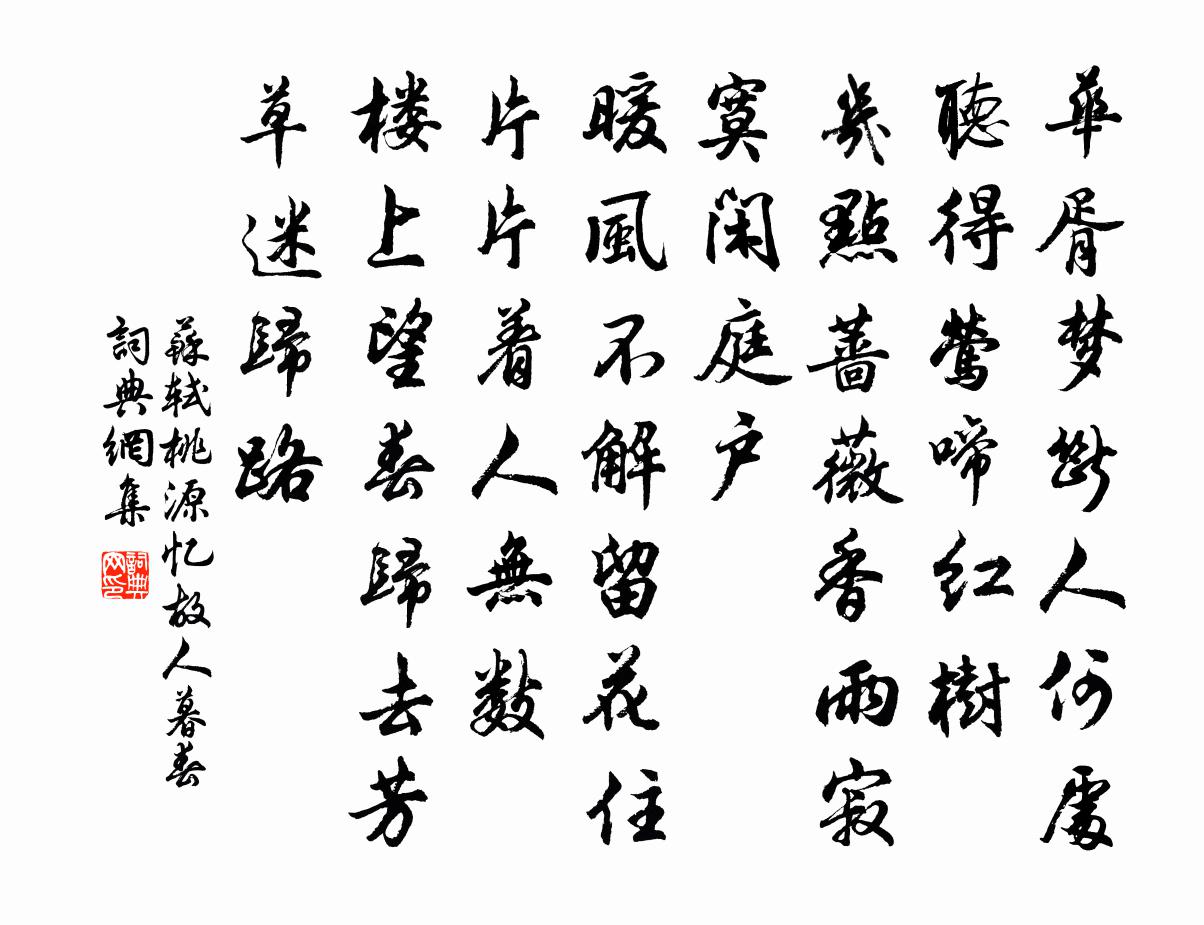 華胥梦断人何處
聽得鶯啼红樹
幾點蔷薇香雨寂
寞閑庭户
暖風不解留花住
片片着人無數
楼上望春歸去芳
草迷歸路
蘇轼桃源忆故人暮春
詞典網集
詞典网印